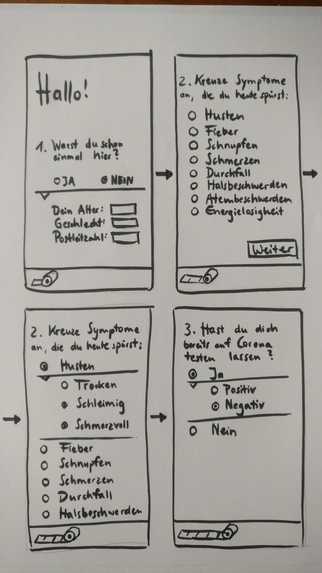 Hallo!
1. Warst du schon
einmal hier?
JA
NEIN
Dein Alter:
Geschlecht:
Postleitzahl:
2. Kreuze Symptome
an, die du heute spürst:
Husten
Fieber
Schnupfen
Schmerzen
Durchfall
Halsbeschwerden
Atembeschwerden
Energielosigkeit
Weiter
2. Kreuze Symptome
an, die du heute spürst:
Husten
Trocken
Schleimig
Schmerzvoll
Fieber
Schnupfen
Schmerzen
Durchfall
Halsbeschwerden
3. Hast du dich
bereits auf Corona
testen lassen?
Ja
Positiv
Negativ
Nein